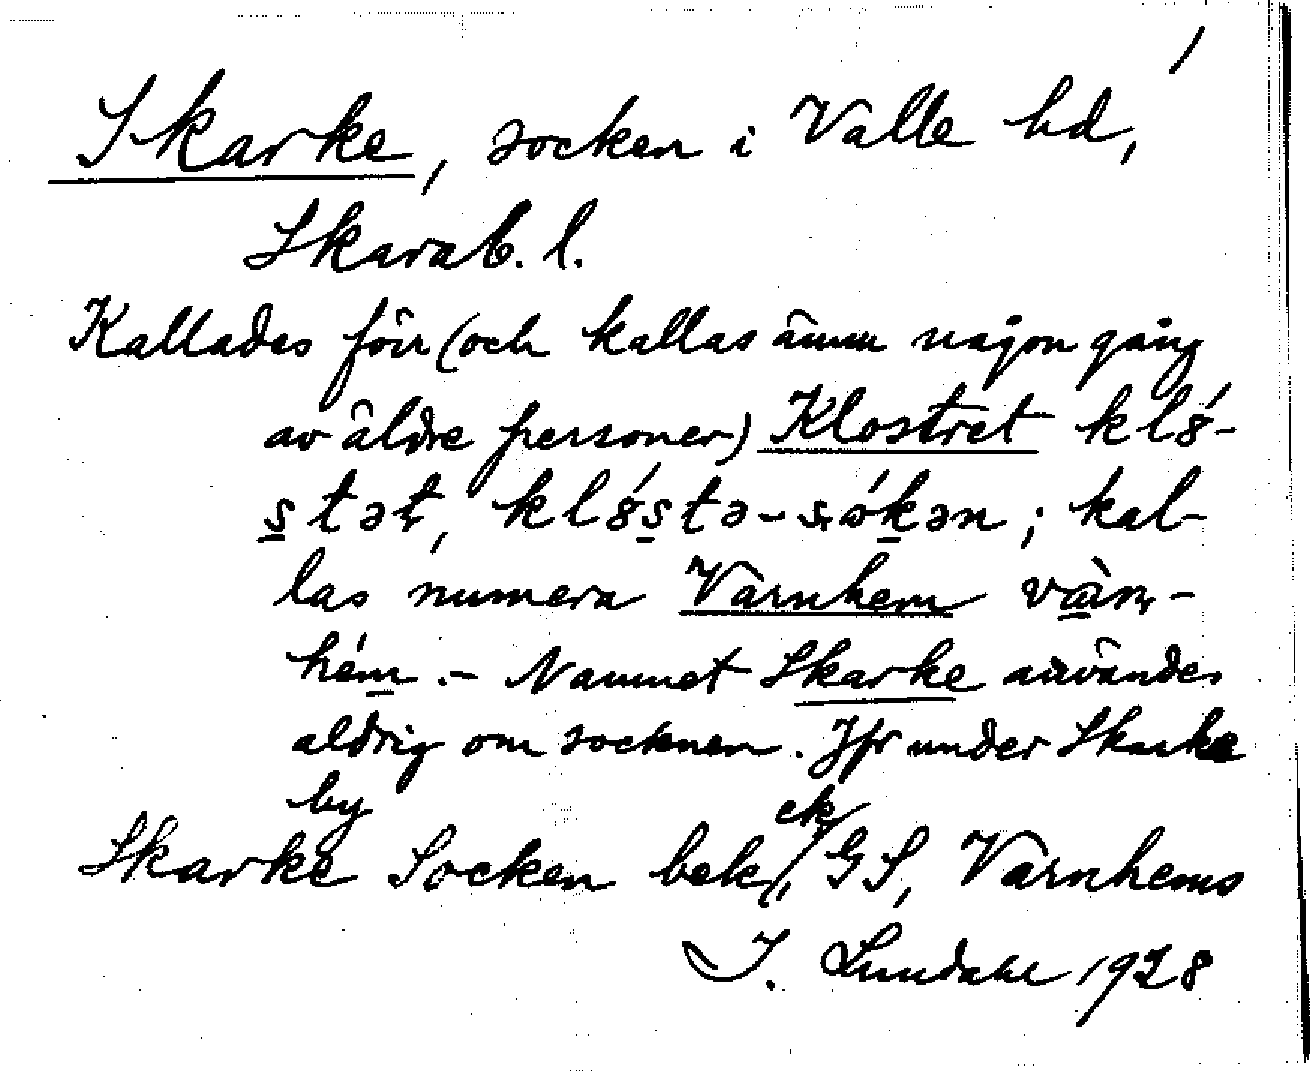 /
Skarke, socken i Valle hd,
Skarab. l.
Kallades förr (och kallas ännu någon gång
av äldre personer) Klostret kló-
stət, klóstə-sókən; kal-
las numera Varnhem
hém. - Namnet Skarke användes
aldrig om socknen. Jfr under Skarke
by
ck
Skarke Socken bek, GS, Varnhems
I. Lundahl 1928